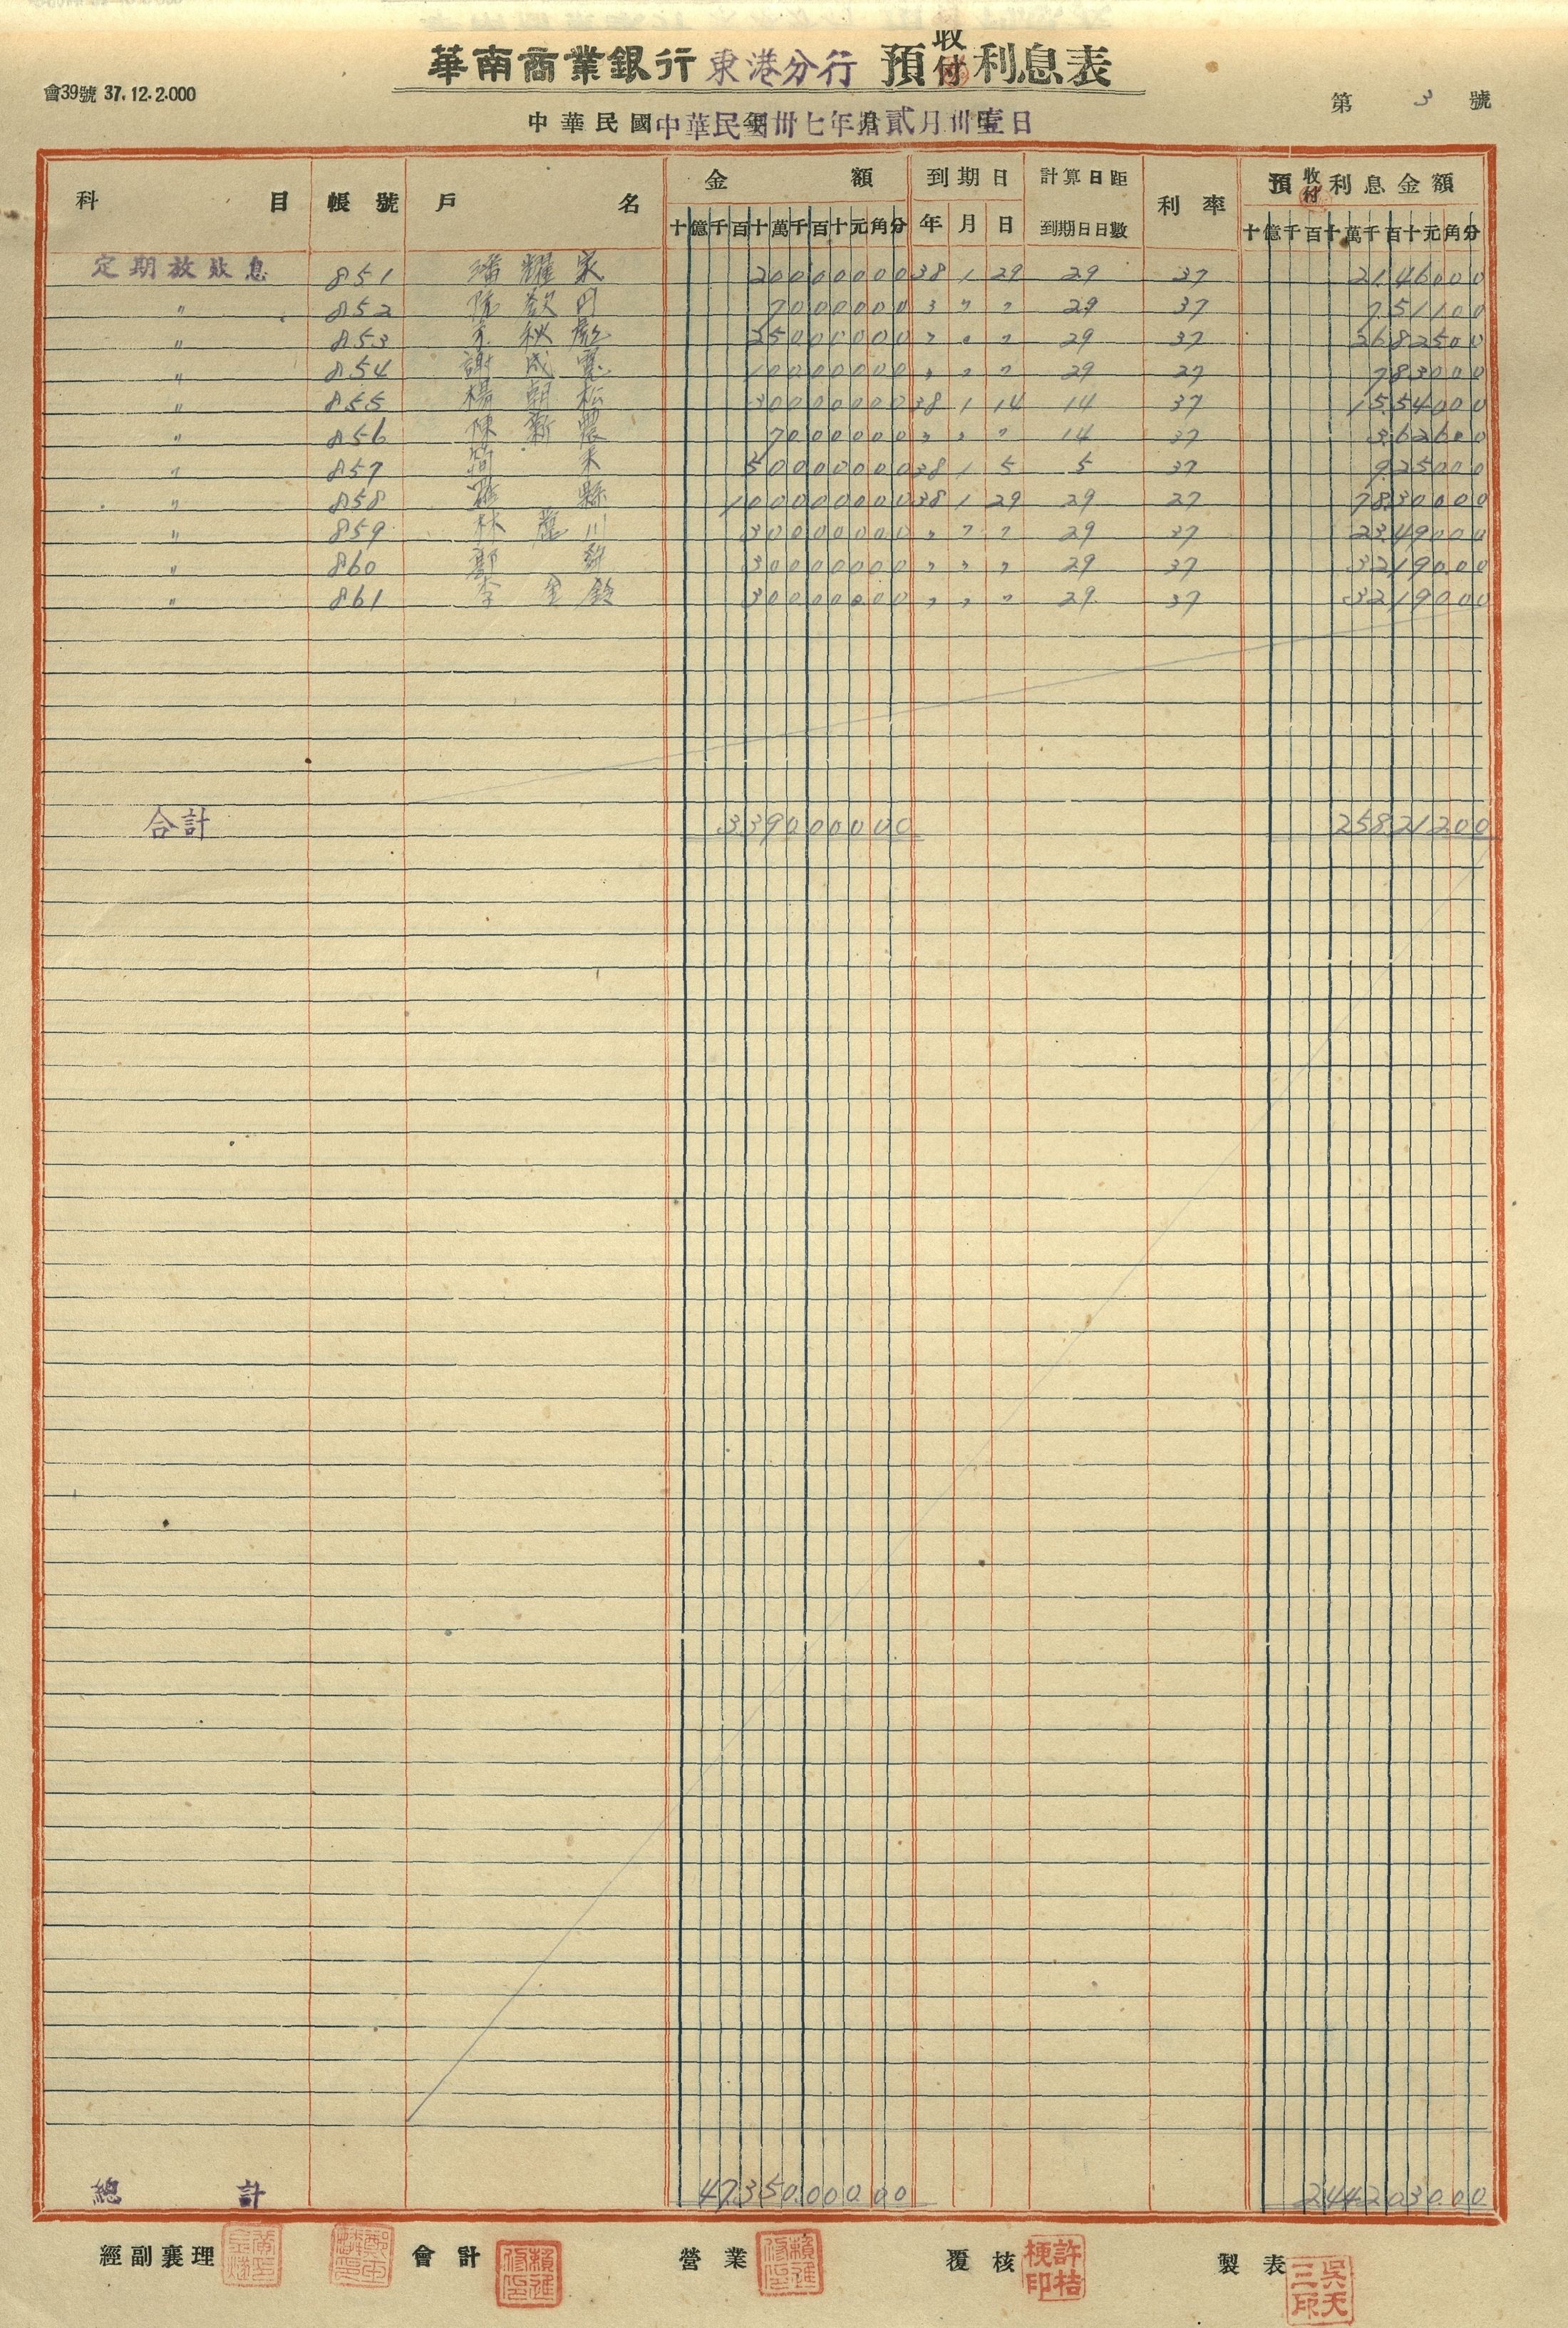 華南商業銀行東港分行 預收付利息表
會39號 37.12.2.000
第 3 號
中華民國 中華民國卅七年拾貳月卅壹日
科 目 帳 號 戶 名 金 額 到期日 計算日距到期日日數 利率 預收付利息金額
十億千百十萬千百十元角分 年 月 日 十億千百十萬千百十元角分
定期放款息 851 潘耀家 20000000 38 1 29 29 37 2146000
〃 852 7000000 〃 〃 〃 29 37 751100
〃 853 秋 25000000 〃 〃 〃 29 37 2682500
〃 854 謝成 10000000 〃 〃 〃 29 27 783000
〃 855 楊朝松 30000000 38 1 14 14 37 1554000
〃 856 陳新農 7000000 〃 〃 〃 14 37 362600
〃 857 50000000 38 1 5 5 37 925000
〃 858 100000000 38 1 29 29 27 7830000
〃 859 林 川 30000000 〃 〃 〃 29 27 2349000
〃 860 鄭 30000000 〃 〃 〃 29 37 3219000
〃 861 李金鈴 30000000 〃 〃 〃 29 37 3219000
合計 339000000 25821200
總 計 47.350.000.00 2.442.030.00
經副襄理 會計 賴進修印 營業 賴進修印 覆核 許桔梗印 製表 吳天三印